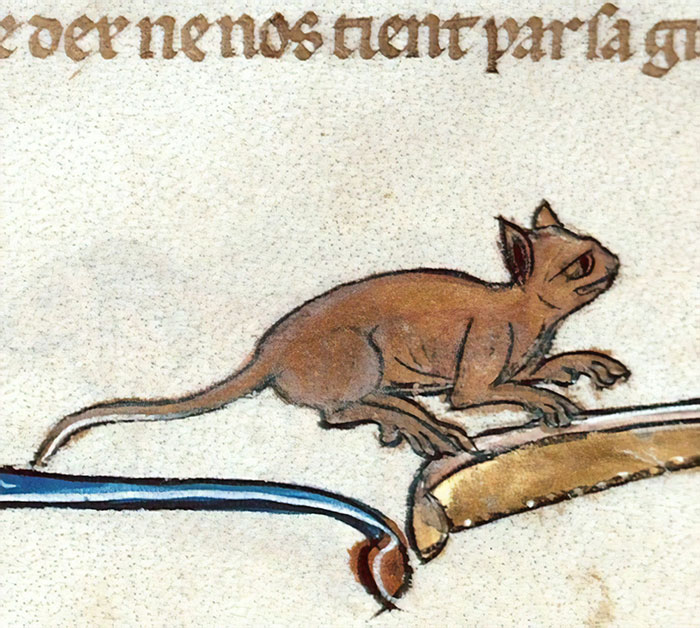 e dex ne nos tient par sa gr